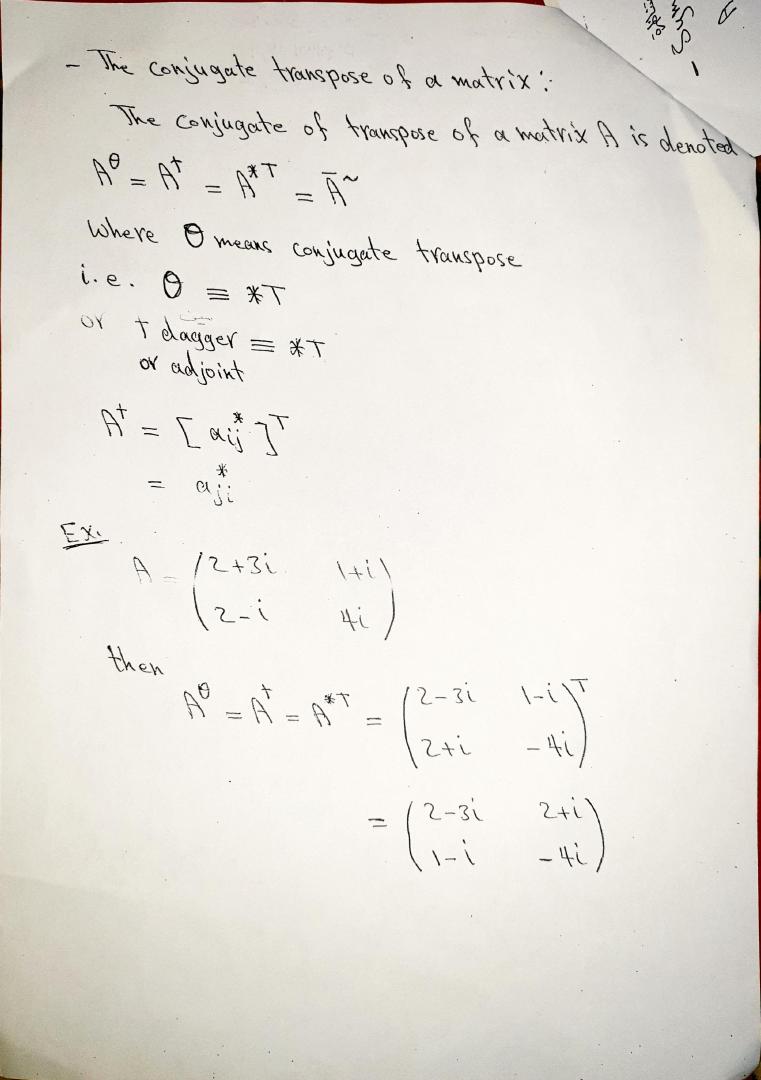 - The conjugate transpose of a matrix :-
The conjugate of transpose of a matrix A is denoted
A^θ = A^† = A^*T = Ā^~
where θ means conjugate transpose
i.e. θ ≡ *T
or † dagger ≡ *T
or adjoint
A^† = [aij^*]^T
= aji^*
Ex.
A = (2+3i 1+i)
(2-i 4i)
then
A^θ = A^† = A^*T = (2-3i 1-i)^T
(2+i -4i)
= (2-3i 2+i)
(1-i -4i)